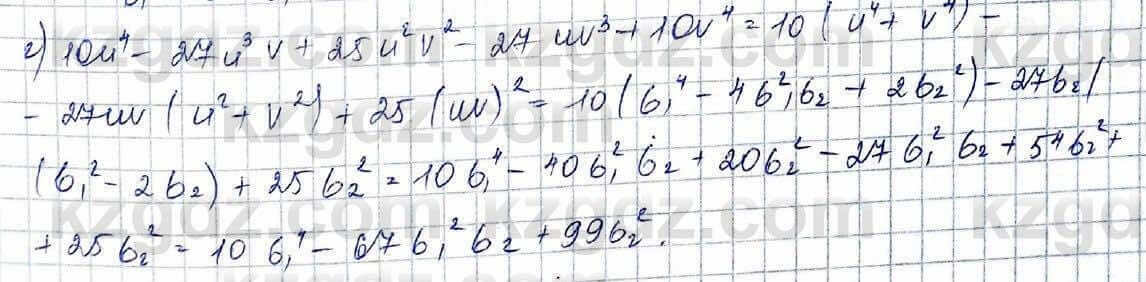 г) 10u⁴ - 27u³v + 25u²v² - 27uv³ + 10v⁴ = 10(u⁴ + v⁴) -
- 27uv(u² + v²) + 25(uv)² = 10(б₁⁴ - 4б₁²б₂ + 2б₂²) - 27б₂(
(б₁² - 2б₂) + 25б₂² = 10б₁⁴ - 40б₁²б₂ + 20б₂² - 27б₁²б₂ + 54б₂² +
+ 25б₂² = 10б₁⁴ - 67б₁²б₂ + 99б₂².